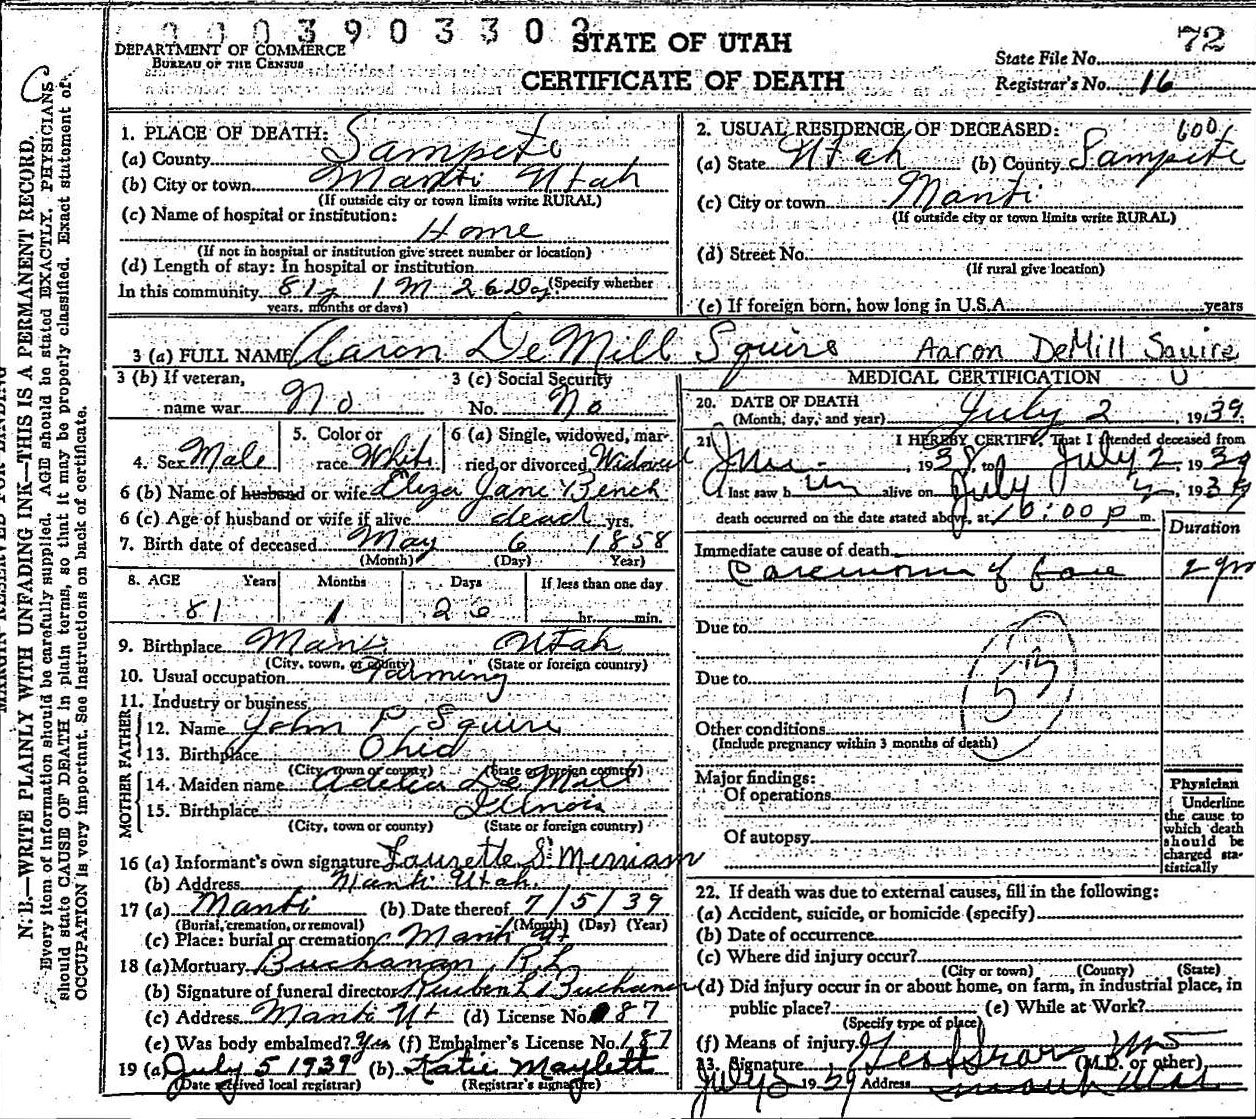 0003903302
72
DEPARTMENT OF COMMERCE
BUREAU OF THE CENSUS
STATE OF UTAH
CERTIFICATE OF DEATH
State File No.
Registrar's No. 16
N. B.—WRITE PLAINLY WITH UNFADING INK—THIS IS A PERMANENT RECORD.
Every item of information should be carefully supplied. AGE should be stated EXACTLY. PHYSICIANS
should state CAUSE OF DEATH in plain terms, so that it may be properly classified. Exact statement of
OCCUPATION is very important. See instructions on back of certificate.
1. PLACE OF DEATH:
(a) County Sampete
(b) City or town Manti Utah
(If outside city or town limits write RURAL)
(c) Name of hospital or institution:
Home
(If not in hospital or institution give street number or location)
(d) Length of stay: In hospital or institution
In this community 81y 1 M 26 Dy (Specify whether
years, months or days)
2. USUAL RESIDENCE OF DECEASED:
(a) State Utah (b) County Sampete
(c) City or town Manti
(If outside city or town limits write RURAL)
(d) Street No.
(If rural give location)
(e) If foreign born, how long in U.S.A. years
3 (a) FULL NAME Aaron DeMill Squire Aaron DeMill Squire
3 (b) If veteran, name war No
3 (c) Social Security No. No
4. Sex Male
5. Color or race White
6 (a) Single, widowed, married or divorced Widowed
6 (b) Name of husband or wife Eliza Jane Bench
6 (c) Age of husband or wife if alive dead yrs.
7. Birth date of deceased May 6 1858
(Month) (Day) (Year)
8. AGE Years Months Days If less than one day
81 1 26 hr. min.
9. Birthplace Manti Utah
(City, town, or county) (State or foreign country)
10. Usual occupation Farming
11. Industry or business
FATHER
12. Name John P. Squire
13. Birthplace Ohio
(City, town or county) (State or foreign country)
MOTHER
14. Maiden name Adelia De Mill
15. Birthplace Illinois
(City, town or county) (State or foreign country)
16 (a) Informant's own signature Laurette S. Merriam
(b) Address Manti Utah.
17 (a) Manti (b) Date thereof 7/5/39
(Burial, cremation, or removal) (Month) (Day) (Year)
(c) Place: burial or cremation Manti Ut
18 (a) Mortuary Buchanan, R L
(b) Signature of funeral director Reuben L Buchanan
(c) Address Manti Ut (d) License No. 87
(e) Was body embalmed? Yes (f) Embalmer's License No. 187
19 (a) July 5 1939 (b) Katie Maylett
(Date received local registrar) (Registrar's signature)
MEDICAL CERTIFICATION
20. DATE OF DEATH July 2 1939
(Month, day, and year)
21. I HEREBY CERTIFY, That I attended deceased from
1938, to July 2, 1939
I last saw him alive on July 2, 1939
death occurred on the date stated above, at 10:00 p m.
Duration
Immediate cause of death
Carcinoma of face 2 yrs
Due to
Due to
Other conditions
(Include pregnancy within 3 months of death)
Major findings:
Of operations
Of autopsy
Physician
Underline
the cause to
which death
should be
charged sta-
tistically
22. If death was due to external causes, fill in the following:
(a) Accident, suicide, or homicide (specify)
(b) Date of occurrence
(c) Where did injury occur?
(City or town) (County) (State)
(d) Did injury occur in or about home, on farm, in industrial place, in
public place? (e) While at Work?
(Specify type of place)
(f) Means of injury
23. Signature (M.D. or other)
July 1939 Address Utah